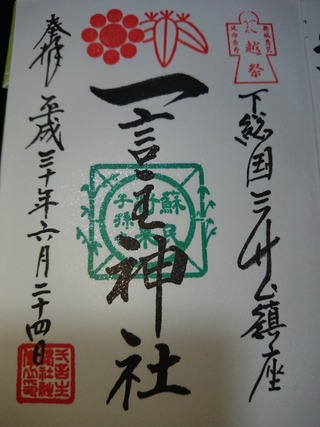 下総国三竹山鎮座
越祭
一言主神社
蘇民
将来
子孫
奉拝
平成三十年六月二十四日